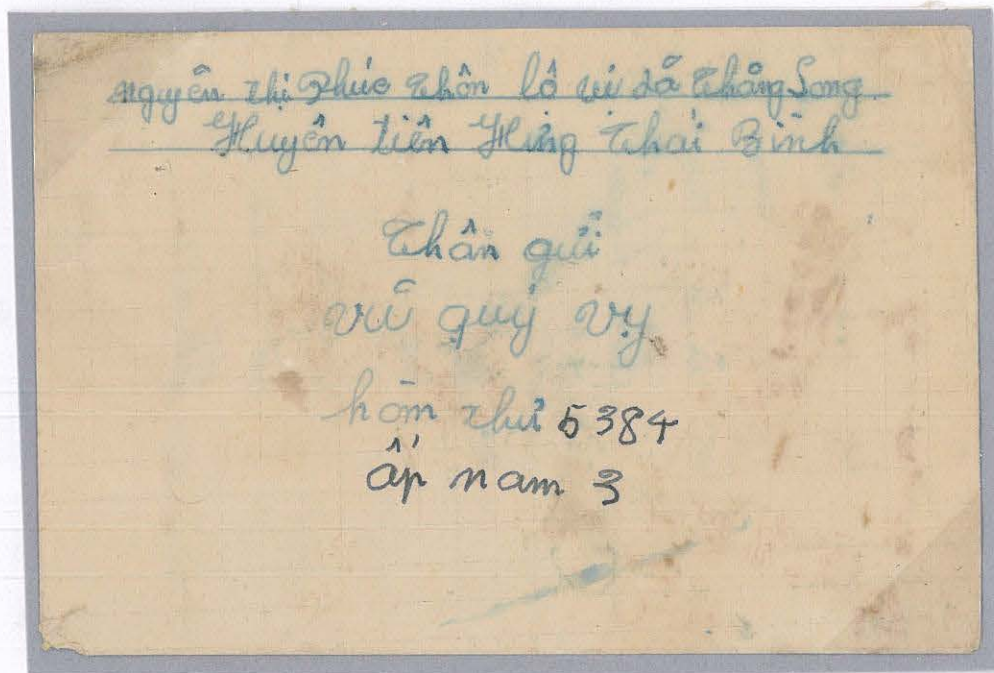 Nguyễn thị Phúc thôn lô vi xã thăng Long
Huyện tiên Hưng thái Bình
Thân gửi
vũ quý vỵ
hòm thư 5384
ấp nam 3